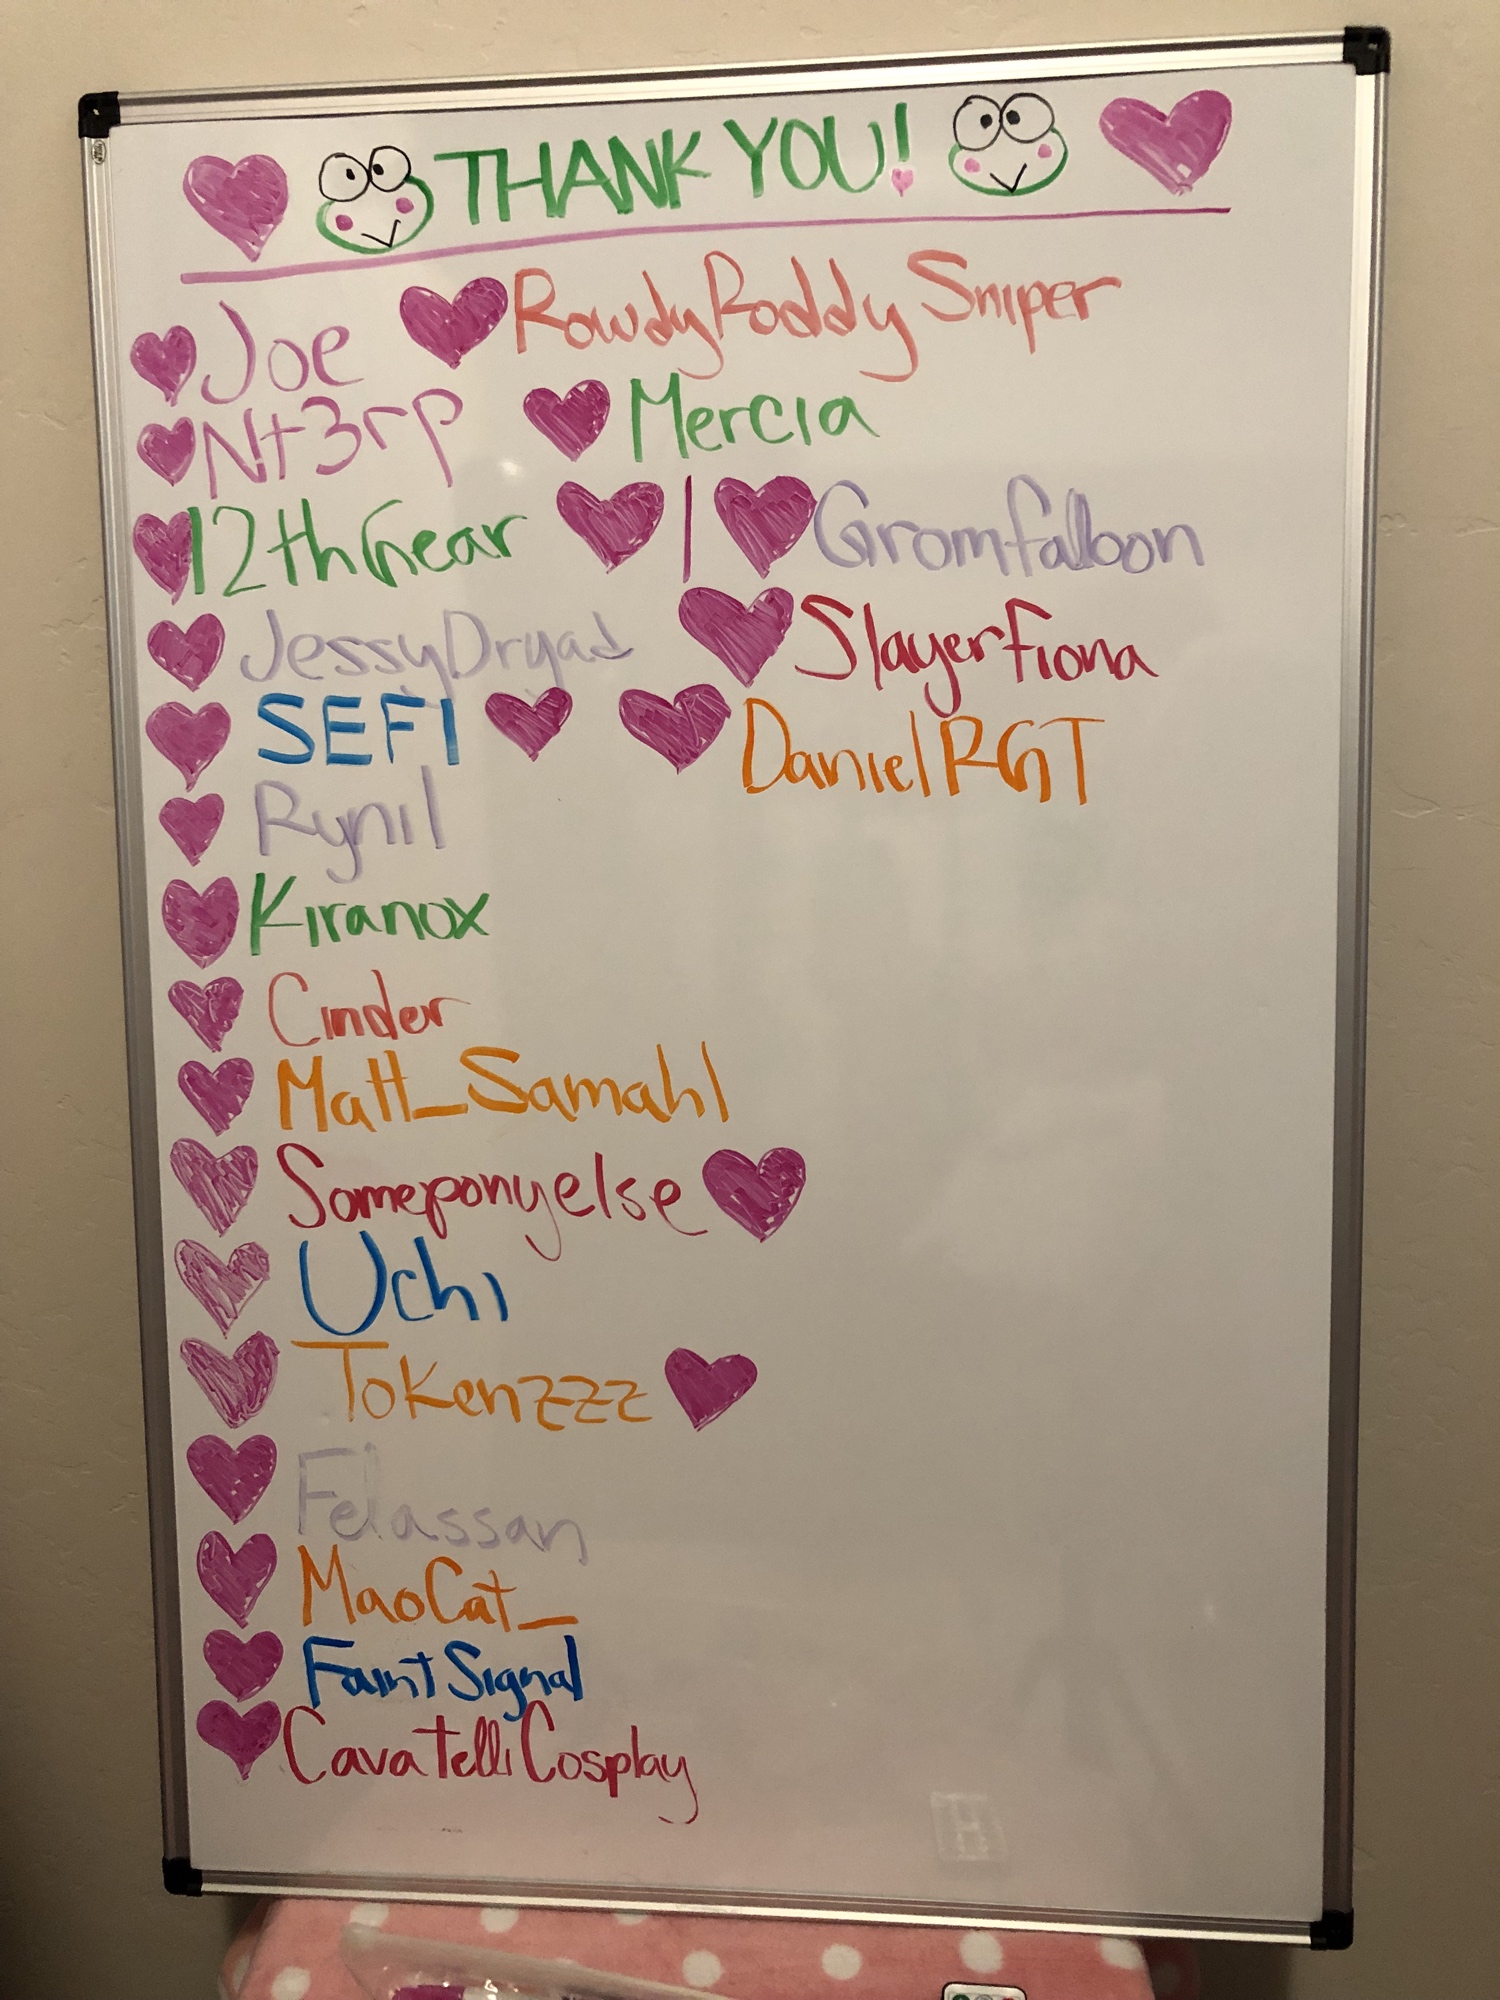 THANK YOU!
Joe RowdyRoddySniper
Nt3rp Mercia
12thGear Gromfalloon
JessyDryad SlayerFiona
SEFI DanielRGT
Rynil
Kiranox
Cinder
Matt_Samahl
Someponyelse
Uchi
Tokenzzz
Felassan
MaoCat_
FaintSignal
CavatelliCosplay